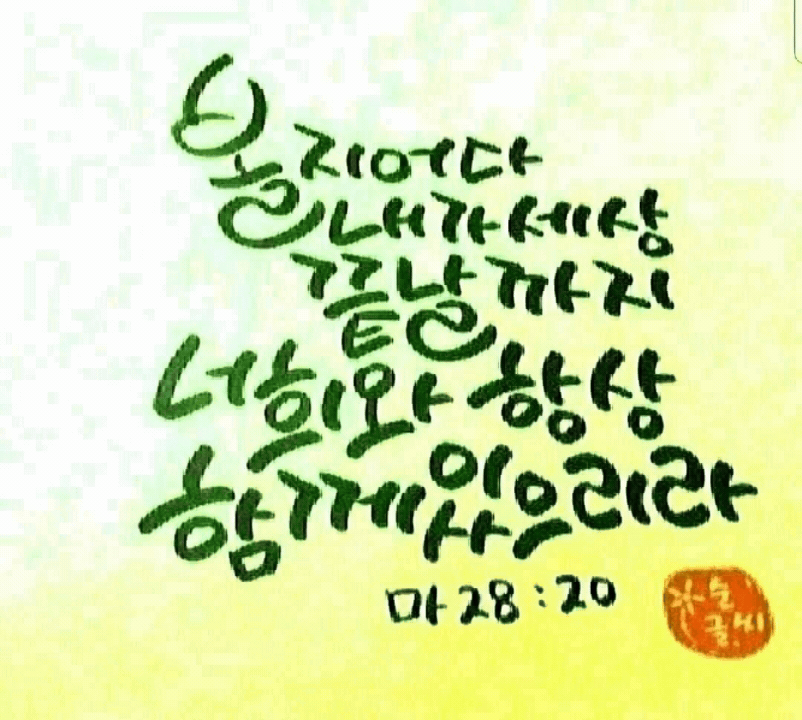 볼지어다
내가 세상
끝날까지
너희와 항상
함께 있으리라
마 28:20
글씨